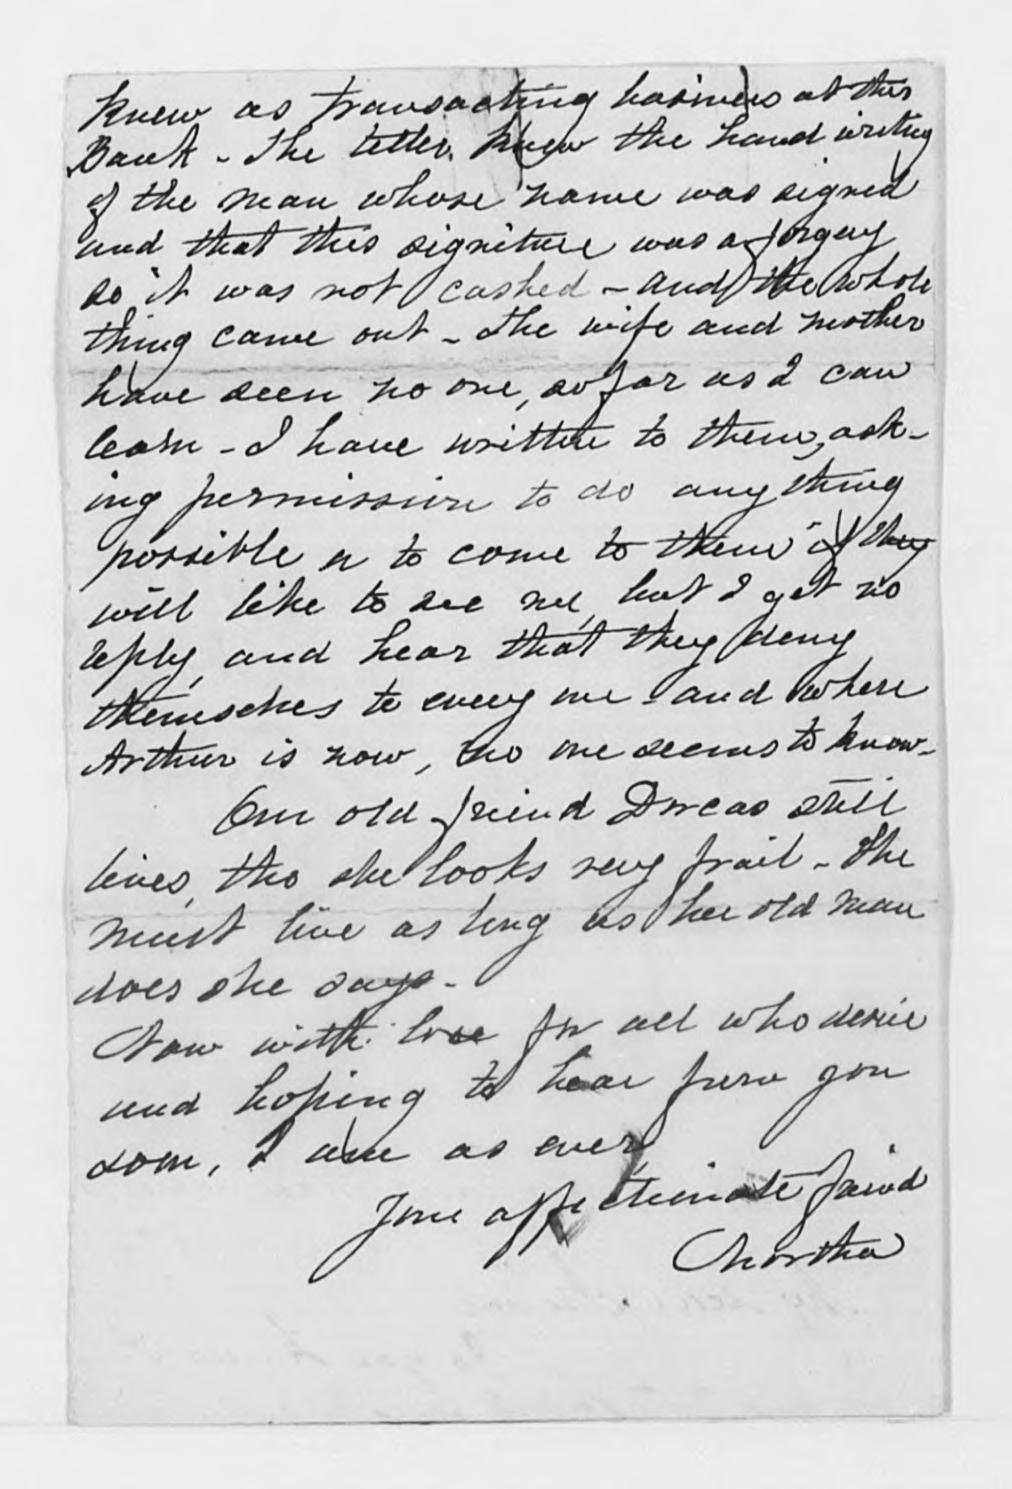 Knew as transacting business at this
Bank - The teller knew the hand writing
of the man whose name was signed
and that this signiture was a forgery
so it was not cashed - and the whole
thing came out - The wife and mother
have seen no one, so far as I can
learn - I have written to them, ask-
ing permission to do any thing
possible or to come to them if they
will like to see me, but I get no
reply, and hear that they deny
themselves to every one - and where
Arthur is now, no one seems to know -
Our old friend Dorcas still
lives, tho she looks very frail - She
must live as long as her old man
does she says -
Now with love for all who desire
and hoping to hear from you
soon, I am as ever
Your affectionate friend
Martha